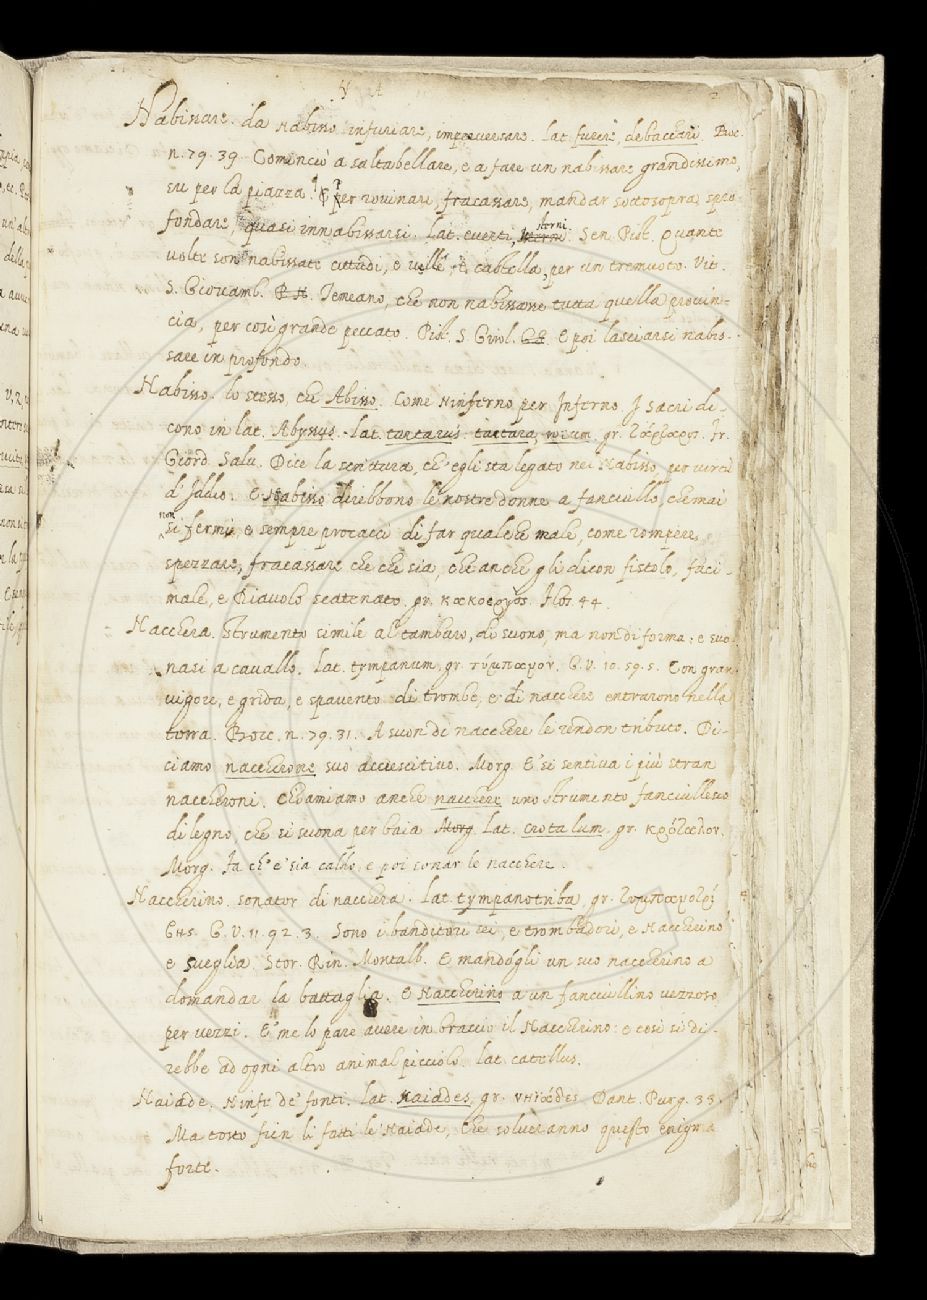 N A
Nabissare. da Nabisso infuriare, imperversare. lat. furere, debacchari. Bocc.
n. 79. 39. Cominciò a saltabellare, e a fare un nabissare grandissimo,
su per la piazza. ¶ per rovinare, fracassare, mandar sottosopra, spro-
fondare, quasi innabissarsi. Lat. everti, sterni. Sen. Pist. Quante
volte son nabissate cittadi, e ville, e castella, per un tremuoto. Vit.
S. Giovamb. P. N. Temeano, che non nabissasse tutta quella provin-
cia, per così grande peccato. Pist. S. Girol. E poi lasciarsi nabis-
sare in profondo.
Nabisso. lo stesso, che Abisso. Come Ninferno per Inferno I sacri di-
cono in lat. Abyssus. lat. tartarus. tartara, gr. τάρταρος. Fr.
Giord. Salv. Dice la scrittura, ch'egli sta legato nel Nabisso, per virtù
d'Iddio. E Nabisso direbbono le nostre donne a fanciullo, che mai
non
si fermi, e sempre procacci di far qualche male, come rompere,
spezzare, fracassare che che sia, che anche gli dicon fistolo, faci-
male, e Diavolo scatenato. gr. κακοεργός. Flos. 44.
Nacchera. Strumento simile al tamburo, di suono, ma non di forma: e suo-
nasi a cavallo. Lat. tympanum, gr. τύμπανον. G. V. 10. 59. 5. Con gran
vigore, e grida, e spavento di trombe, e di nacchere entrarono nella
terra. Bocc. n. 79. 31. A suon di nacchere le rendon tributo. Di-
ciamo naccherone suo accrescitivo. Morg. E' si sentiva i più stran
naccheroni. Chiamiamo anche nacchere uno strumento fanciullesco
di legno, che si suona per baia Morg. Lat. crotalum. gr. κρόταλον.
Morg. Fa ch'e' sia calho, e poi sonar le nacchere.
Naccherino. sonator di nacchera. Lat. tympanotriba, gr. τυμπανοτρί
βης. G. V. 11. 92. 3. Sono i banditori sei, e trombadori, e Naccherino
e sveglia. Stor. Rin. Montalb. E mandógli un suo naccherino a
domandar la battaglia. E Naccherino a un fanciullino vezzoso
per vezzi. E' me lo pare avere in braccio il Naccherino: e così si di-
rebbe ad ogni altro animal piccolo. lat. catellus.
Naiade. Ninfe de' fonti. Lat. Naiades, gr. νηϊάδες. Dant. Purg. 33.
Ma tosto fien li fatti le Naiade, Che solveranno questo enigma
forte.